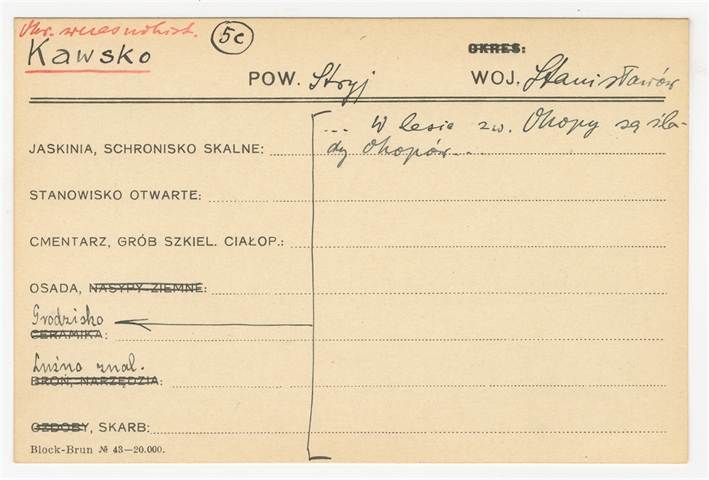 Okr. wczesnohist.
Kawsko
5c
OKRES:
POW. Stryj
WOJ. Stanisławów
... W lesie zw. Okopy są śla-
dy okopów...
JASKINIA, SCHRONISKO SKALNE:
STANOWISKO OTWARTE:
CMENTARZ, GRÓB SZKIEL. CIAŁOP.:
OSADA, NASYPY ZIEMNE:
Grodzisko
CERAMIKA:
Luźno znal.
BROŃ, NARZĘDZIA:
OZDOBY, SKARB:
Block-Brun № 43—20.000.